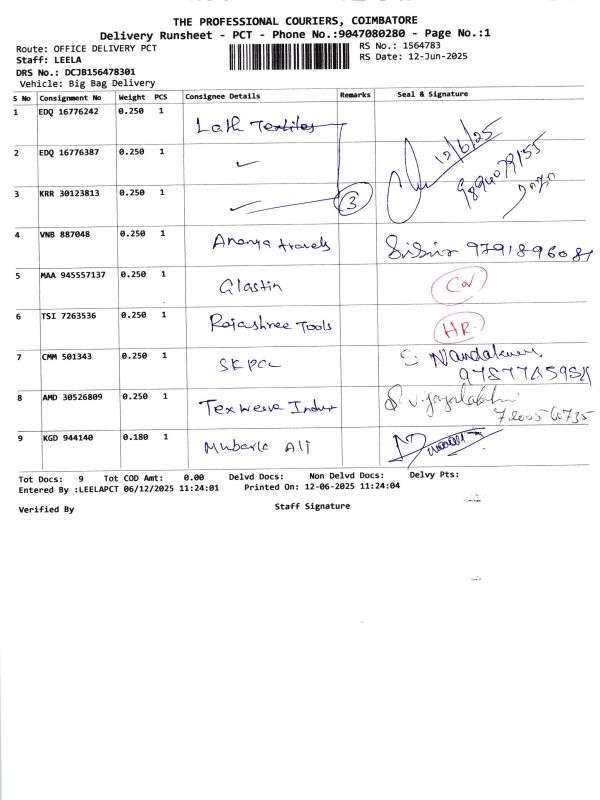 THE PROFESSIONAL COURIERS, COIMBATORE
Delivery Runsheet - PCT - Phone No.:9047080280 - Page No.:1
Route: OFFICE DELIVERY PCT
RS No.: 1564783
Staff: LEELA
RS Date: 12-Jun-2025
DRS No.: DCJB156478301
Vehicle: Big Bag Delivery
S No Consignment No Weight PCS Consignee Details Remarks Seal & Signature
1 EDQ 16776242 0.250 1 Lath Textiles 12/6/25
2 EDQ 16776387 0.250 1 ✓
3 KRR 30123813 0.250 1 ✓ 3
4 VNB 887048 0.250 1 Ananya travels 9791896081
5 MAA 945557137 0.250 1 Glastin
6 TSI 7263536 0.250 1 Rajashree Tools HR
7 CMM 501343 0.250 1 SKPCL
8 AMD 30526809 0.250 1 Texweave Indus
9 KGD 944140 0.180 1 Mubarak Ali
Tot Docs: 9 Tot COD Amt: 0.00 Delvd Docs: Non Delvd Docs: Delvy Pts:
Entered By :LEELAPCT 06/12/2025 11:24:01 Printed On: 12-06-2025 11:24:04
Verified By Staff Signature